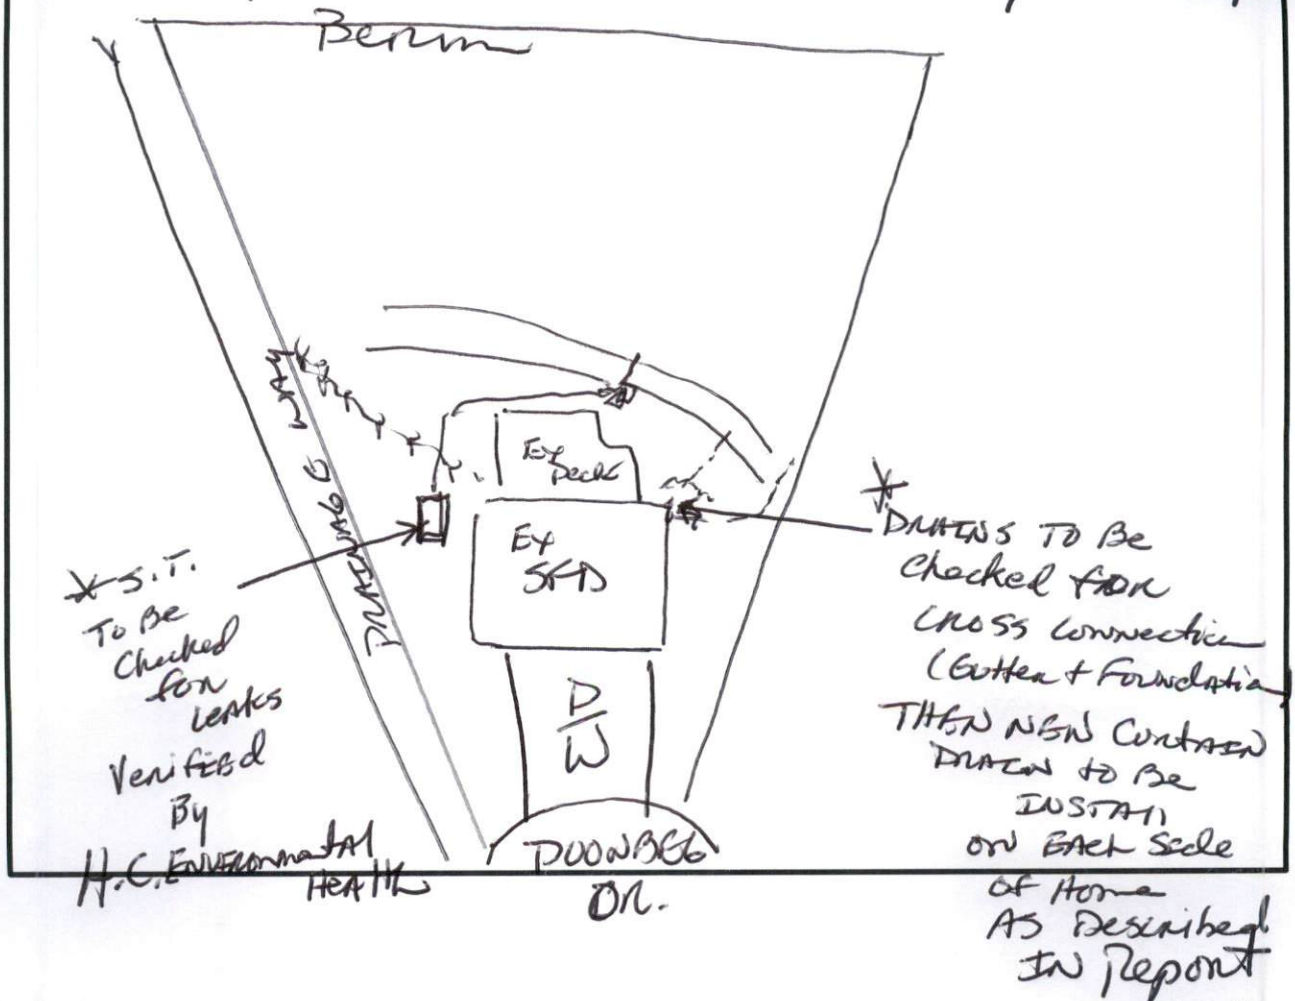 Berm
Ex
Deck
Ex
SFD
D/W
DRAINAGE
* S.T.
To Be
Checked
for
Leaks
Verified
By
H.C. Environmental
Health
DOONBEG
DR.
* DRAINS TO Be
Checked for
Cross Connection
(Gutter + Foundation)
THEN NEW Curtain
DRAIN to Be
INSTALL
on Each Side
of Home
AS Described
IN Report